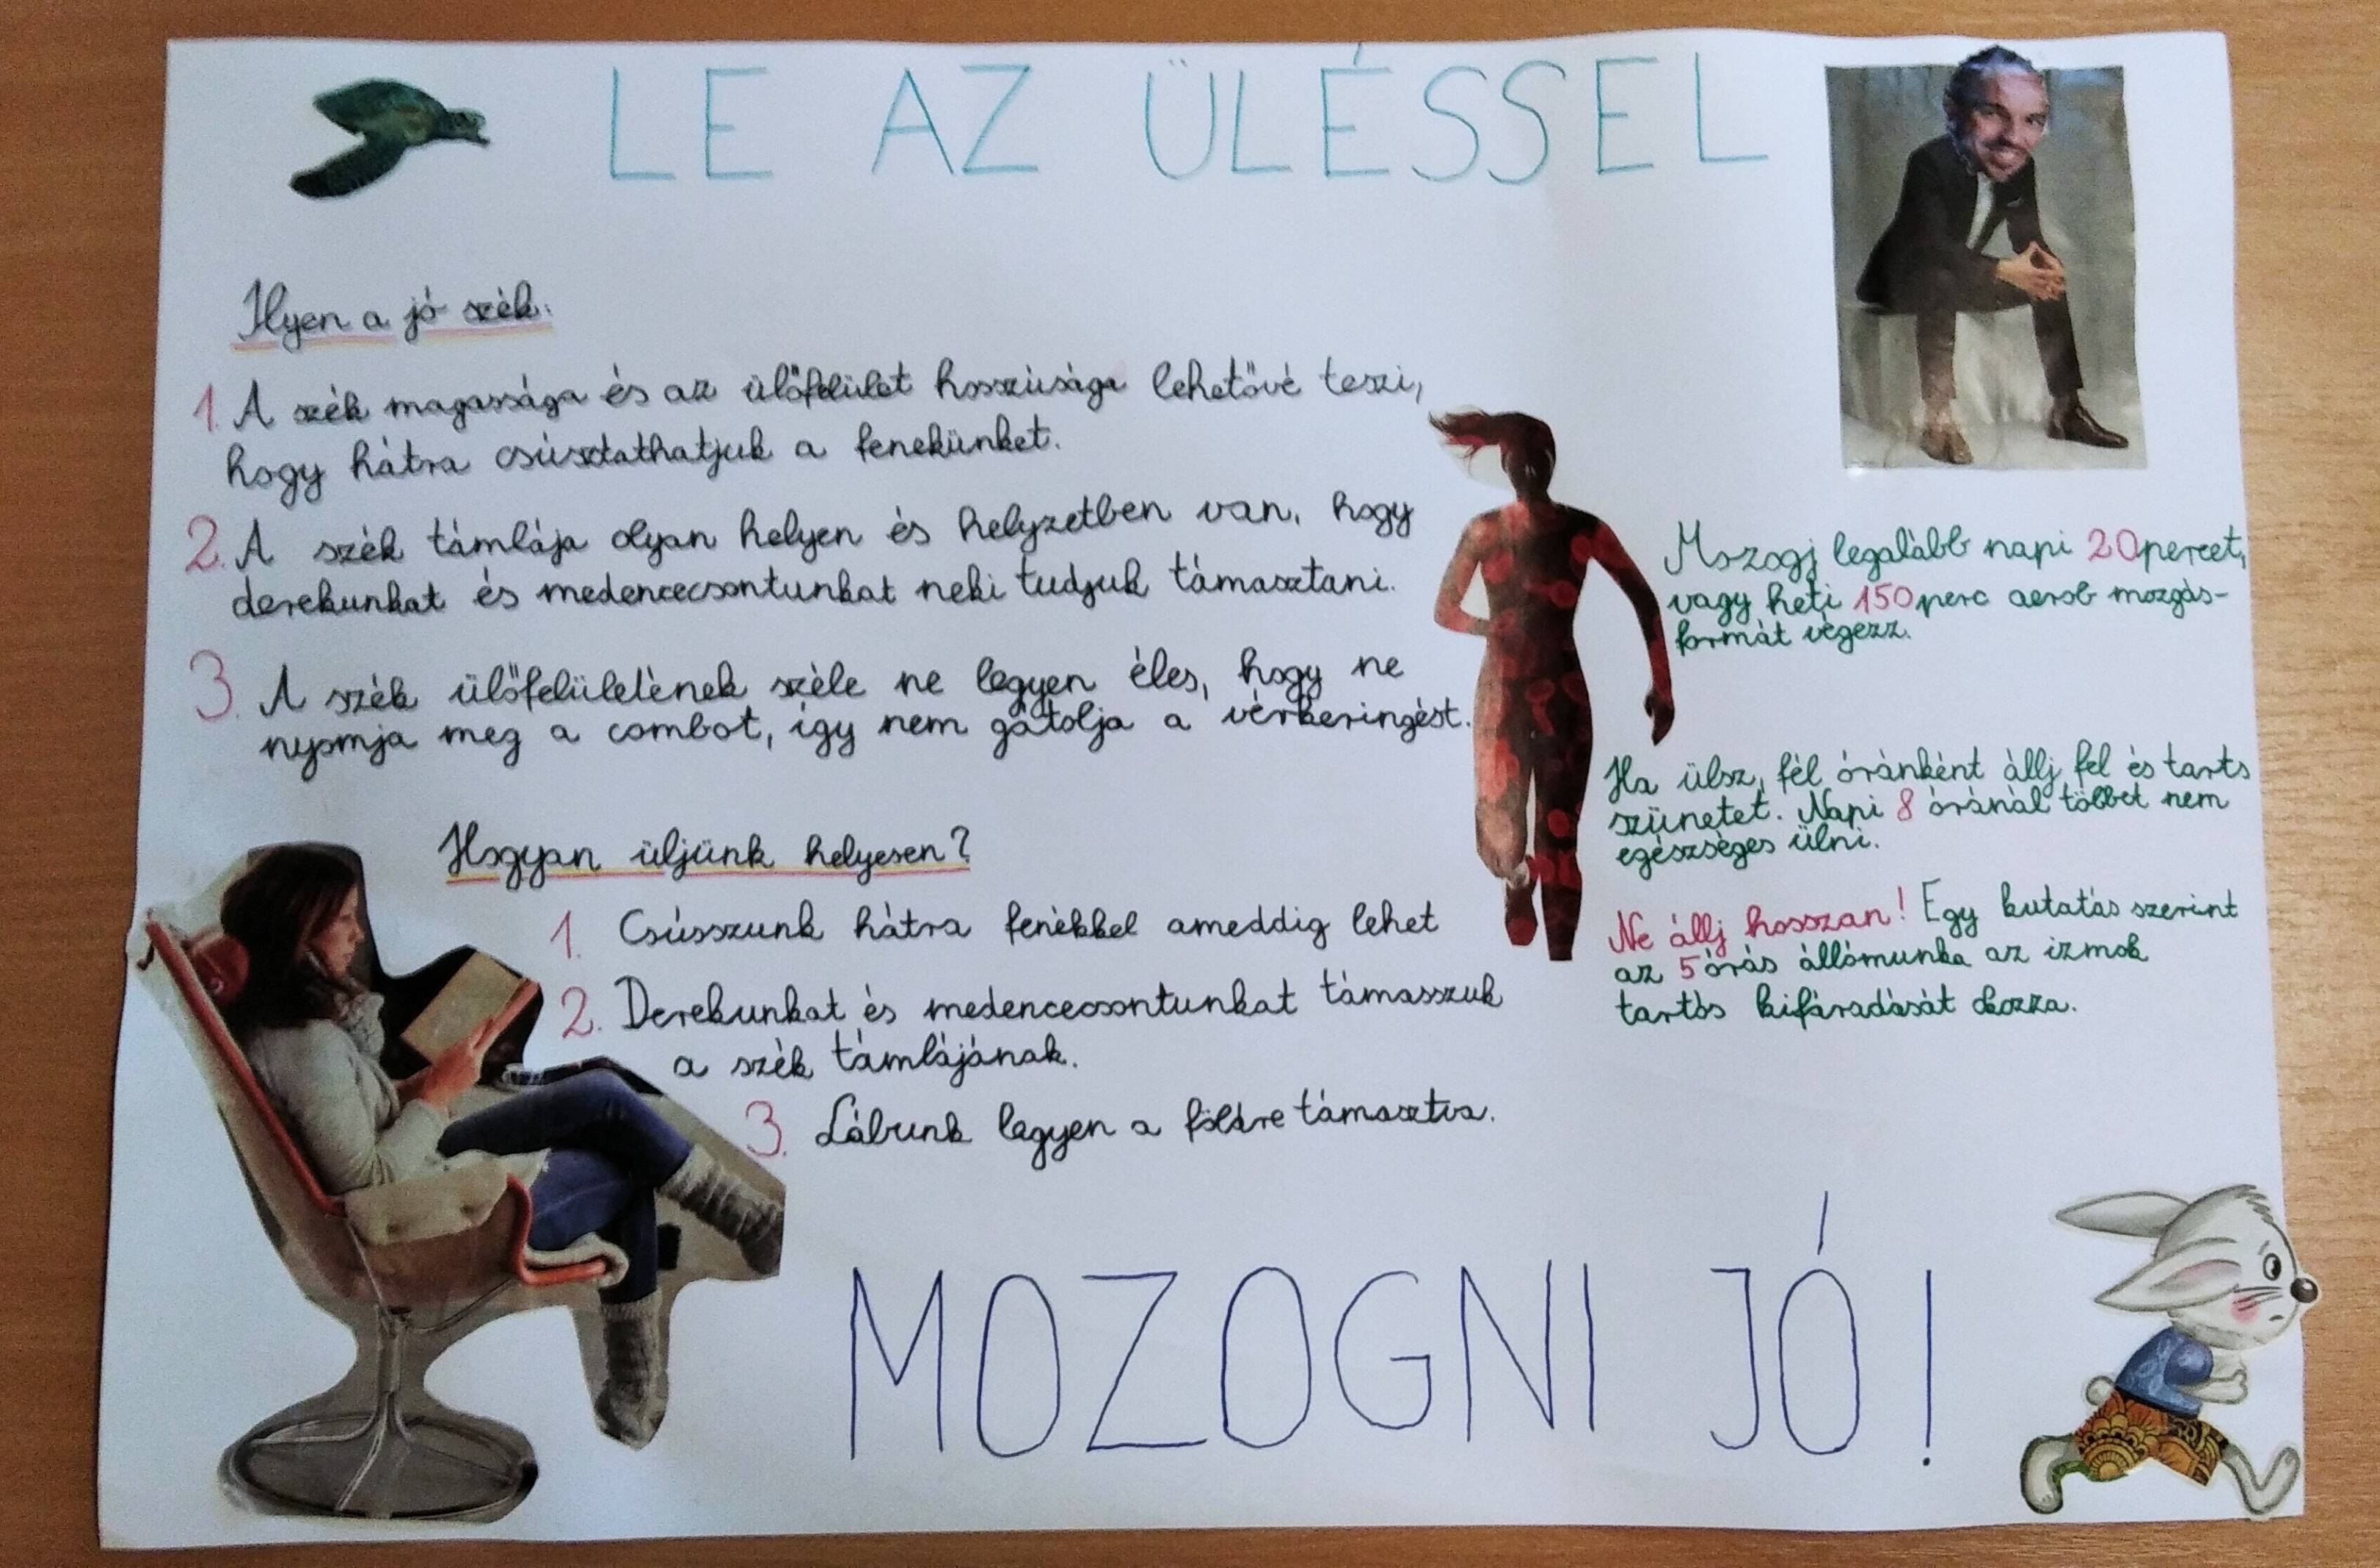 LE AZ ÜLÉSSEL
Ilyen a jó szék:
1. A szék magassága és az ülőfelület hosszúsága lehetővé teszi,
hogy hátra csúsztathatjuk a fenekünket.
2. A szék támlája olyan helyen és helyzetben van, hogy
derekunkat és medencecsontunkat neki tudjuk támasztani.
3. A szék ülőfelületének széle ne legyen éles, hogy ne
nyomja meg a combot, így nem gátolja a vérkeringést.
Hogyan üljünk helyesen?
1. Csússzunk hátra fenékkel ameddig lehet
2. Derekunkat és medencecsontunkat támasszuk
a szék támlájának.
3. Lábunk legyen a földre támasztva.
Mozogj legalább napi 20 percet,
vagy heti 150 perc aerob mozgás-
formát végezz.
Ha ülsz, fél óránként állj fel és tarts
szünetet. Napi 8 óránál többet nem
egészséges ülni.
Ne állj hosszan! Egy kutatás szerint
az 5 órás állómunka az izmok
tartós kifáradását okozza.
MOZOGNI JÓ!